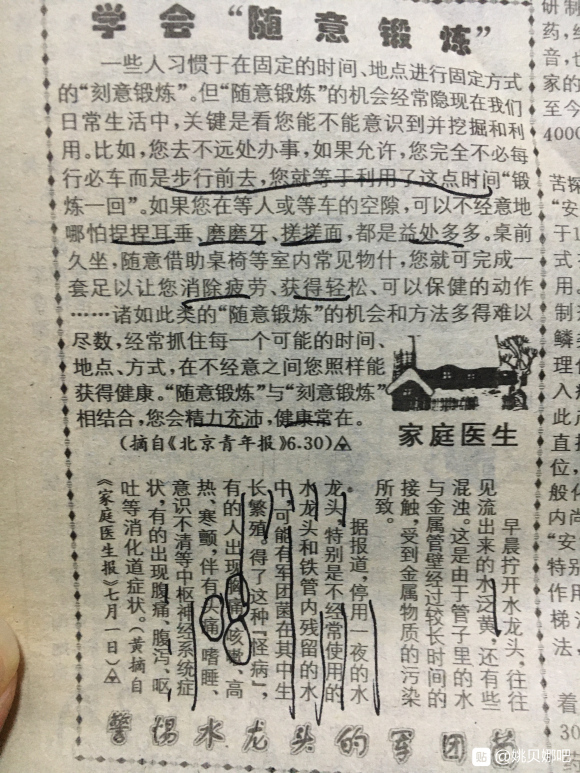 学会“随意锻炼”
一些人习惯于在固定的时间、地点进行固定方式
的“刻意锻炼”。但“随意锻炼”的机会经常隐现在我们
日常生活中,关键是看您能不能意识到并挖掘和利
用。比如,您去不远处办事,如果允许,您完全不必每
行必车而是步行前去,您就等于利用了这点时间“锻
炼一回”。如果您在等人或等车的空隙,可以不经意地
哪怕捏捏耳垂、磨磨牙、搓搓面,都是益处多多。桌前
久坐,随意借助桌椅等室内常见物什,您就可完成一
套足以让您消除疲劳、获得轻松、可以保健的动作
……诸如此类的“随意锻炼”的机会和方法多得难以
尽数,经常抓住每一个可能的时间、
地点、方式,在不经意之间您照样能
获得健康。“随意锻炼”与“刻意锻炼”
相结合,您会精力充沛,健康常在。
(摘自《北京青年报》6.30)
家庭医生
早晨拧开水龙头,往往
见流出来的水泛黄,还有些
混浊。这是由于管子里的水
与金属管壁经过较长时间的
接触,受到金属物质的污染
所致。
据报道,停用一夜的水
龙头,特别是不经常使用的
水龙头和铁管内残留的水
中,可能有军团菌在其中生
长繁殖。得了这种“怪病”,
有的人出现胸痛、咳嗽、高
热、寒颤,伴有头痛、嗜睡、
意识不清等中枢神经系统症
状,有的出现腹痛、腹泻、呕
吐等消化道症状。(黄摘自
《家庭医生报》七月一日)
警惕水龙头的军团菌
研制
药,经
音,也
家的
至今
4000
苦探
“安
于1
式
用。
制
鳞
理
入
此
直接
位,
般
内
“安
特别
作用
梯
法,
着
30
贴 @姚贝娜吧